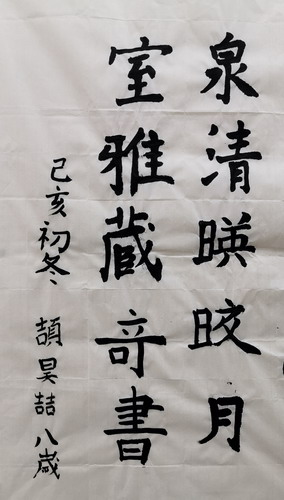 泉清暎皎月
室雅蔵奇書
己亥初冬 頡昊喆八歲